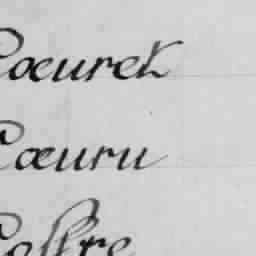 Cœuret
Cœuru
Coffre